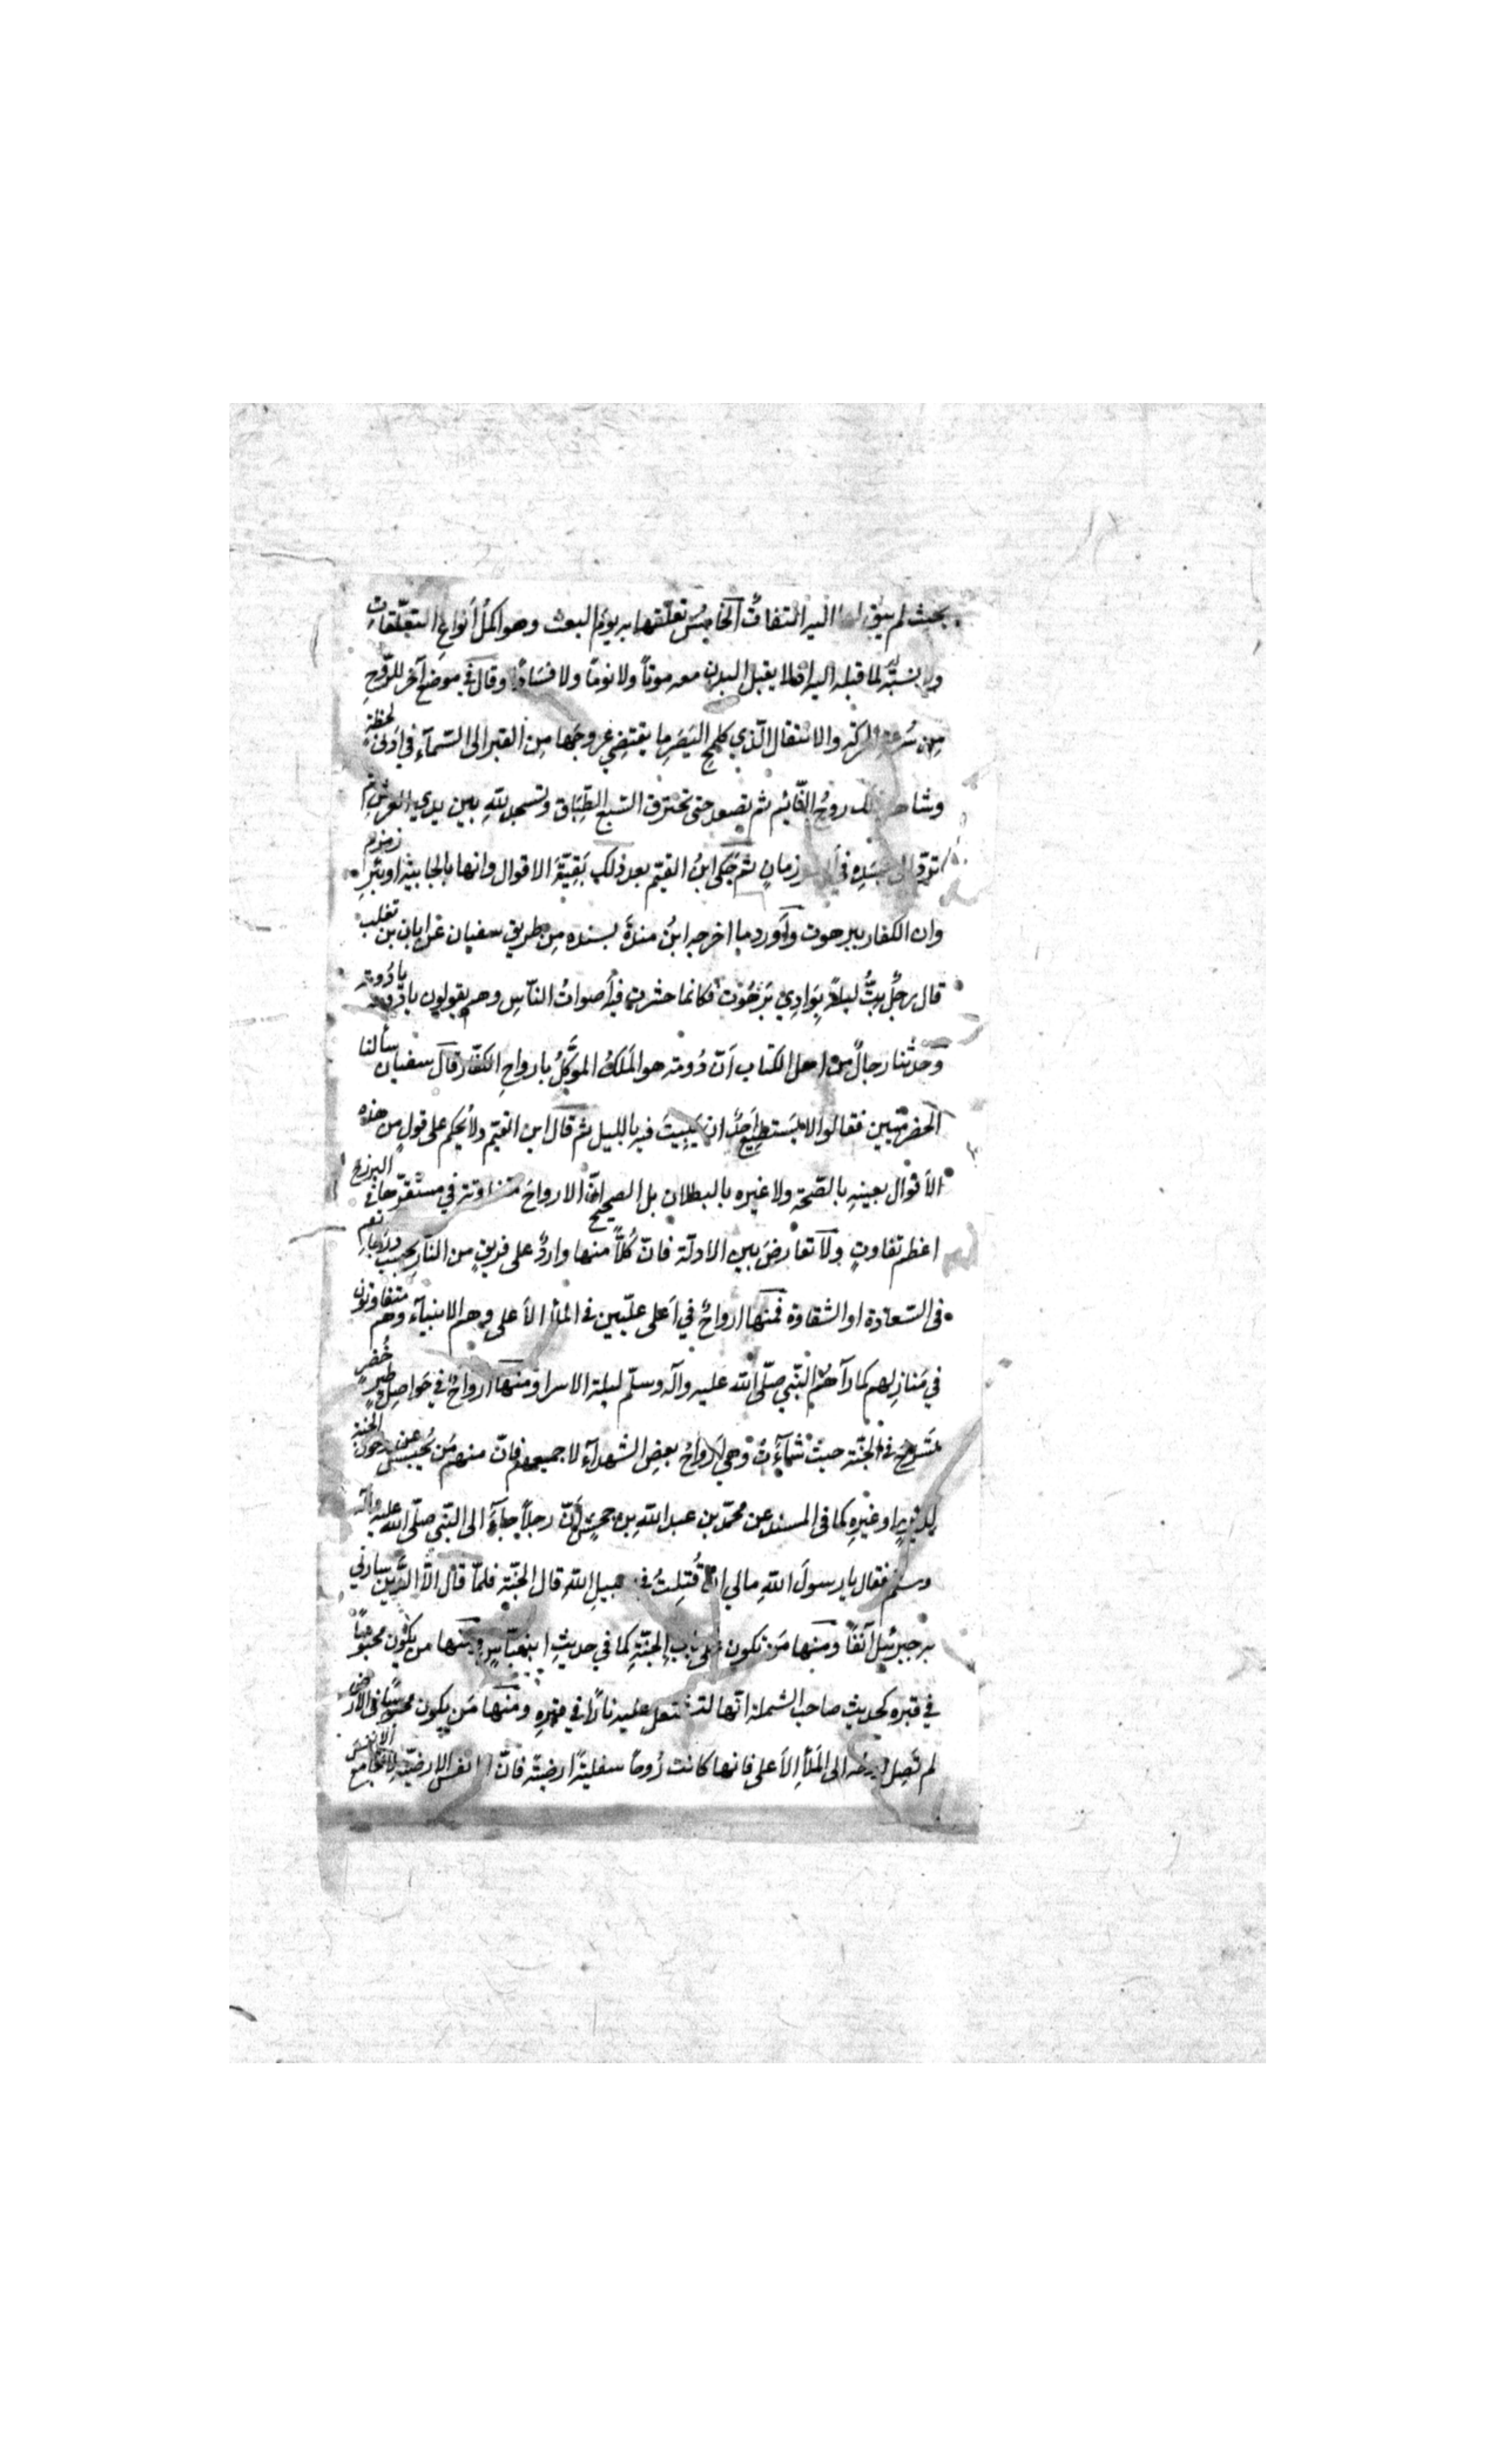 بحيث لم يبق لها اليه التفاتٌ الخامِسُ تعلّقها به يومَ البعث وهو اكملُ أنواعِ التعلّقاتِ
ولا نسبَة لما قبله اليه اذ لا يقبل البدن معه موتاً ولا نومًا ولا فسَادًا وقال في موضعٍ آخر للرّوحِ
مِن سُرعة الحركة والانتقال الّذي كلمحِ البَصَرِ ما يقتضي عروجَها مِن القبر الى السّمآءِ في ادنى لحظة
وشاهد ذلك روحُ النّائِم ثم تصعد حتى تخترق السّبع الطِّبَاقَ وتسجد للهِ بين يدي العرشِ ثم
تُردّ الى جسَدِه في زمانٍ ثم حَكى ابنُ القيّم بعد ذلك بَقِيّةَ الاقوال وانها بالجابية او بئرِ زمزم
وان الكفار ببرهوت وأورد ما اخرجه ابنُ مندةَ بسنده مِن طريقِ سفيان عن ابان بن تغلب
قال رجلٌ بِتُّ ليلةً بِوَادِي بَرَهُوت فكانما حشرت فيه أصواتُ النّاسِ وهم يقولون يا دُومة يا دُومة
وَحدّثنا رجالٌ من اهل الكتاب اَنّ دُومة هو الملَكُ الموَكّلُ بارواحِ الكفّار قال سفيان سألنا
الحضرميّين فقالوا لا يَستطِيع اَحدٌ ان يَبِيتَ فيه بالليل ثم قال ابن القيّم ولا يُحكم على قولٍ من هذه
الأقوال بعينهِ بالصّحة ولا غيره بالبطلان بل الصحيح انّ الارواحَ متفاوتة في مستقرّها في البرزخ
اعظم تفاوتٍ ولا تعارضَ بين الادلّة فانّ كُلاًّ منها واردٌ على فريقٍ من النّاسِ بحسب درجاتهم
في السّعادة او الشقاوة فمنها ارواحٌ في اَعلى علّيّين في الملأ الأعلى وهم الانبيآء وهم متفاوتون
في مَنازِلهم كما رآهُم النّبي صلّى الله عليه وآله وسلّم ليلة الاسرا ومنها ارواحٌ في حَواصِل طيرٍ خُضرٍ
تَسْرحُ في الجنّة حيث شآءَتْ وهي أرواحُ بعضِ الشهدآءِ لا جميعهم فانّ منهم مَن يُحبسُ عن دخول الجنّة
لِدَينٍ او غيرِهِ كما في المسند عن محمّد بن عبد اللهِ بن جحشٍ أنّ رجلاً جآءَ الى النّبي صلّى الله عليه وآله
وسلّم فقال يا رسولَ اللهِ مالي ان قُتِلتُ في سبيلِ اللهِ قال الجنّة فلمّا قال الاّ الدَّين سارّني
به جبرئيل آنفًا ومنها مَن يكون على بابِ الجنّةِ كما في حديثِ ابن عبّاسٍ ومنها من يكون محبوسًا
في قبره كحديثِ صاحب الشملة انّها لتشتعل عليه نارًا في قبرِهِ ومنها مَن يكون محبوسًا في الأرض
لم تَصِل روحُه الى المَلأِ الأعلى فانها كانت رُوحًا سفليةً ارضيّة فانّ الانفس الارضيّة لا تجامع الانفسَ